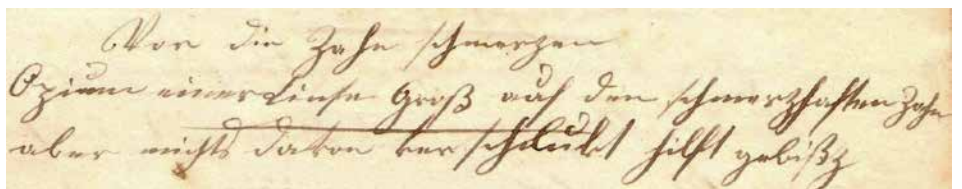 Vor die Zahn schmerzen
Opium einer Linse Groß auf den schmerzhaften Zahn
aber nichts davon verschlukt hilft gewißz